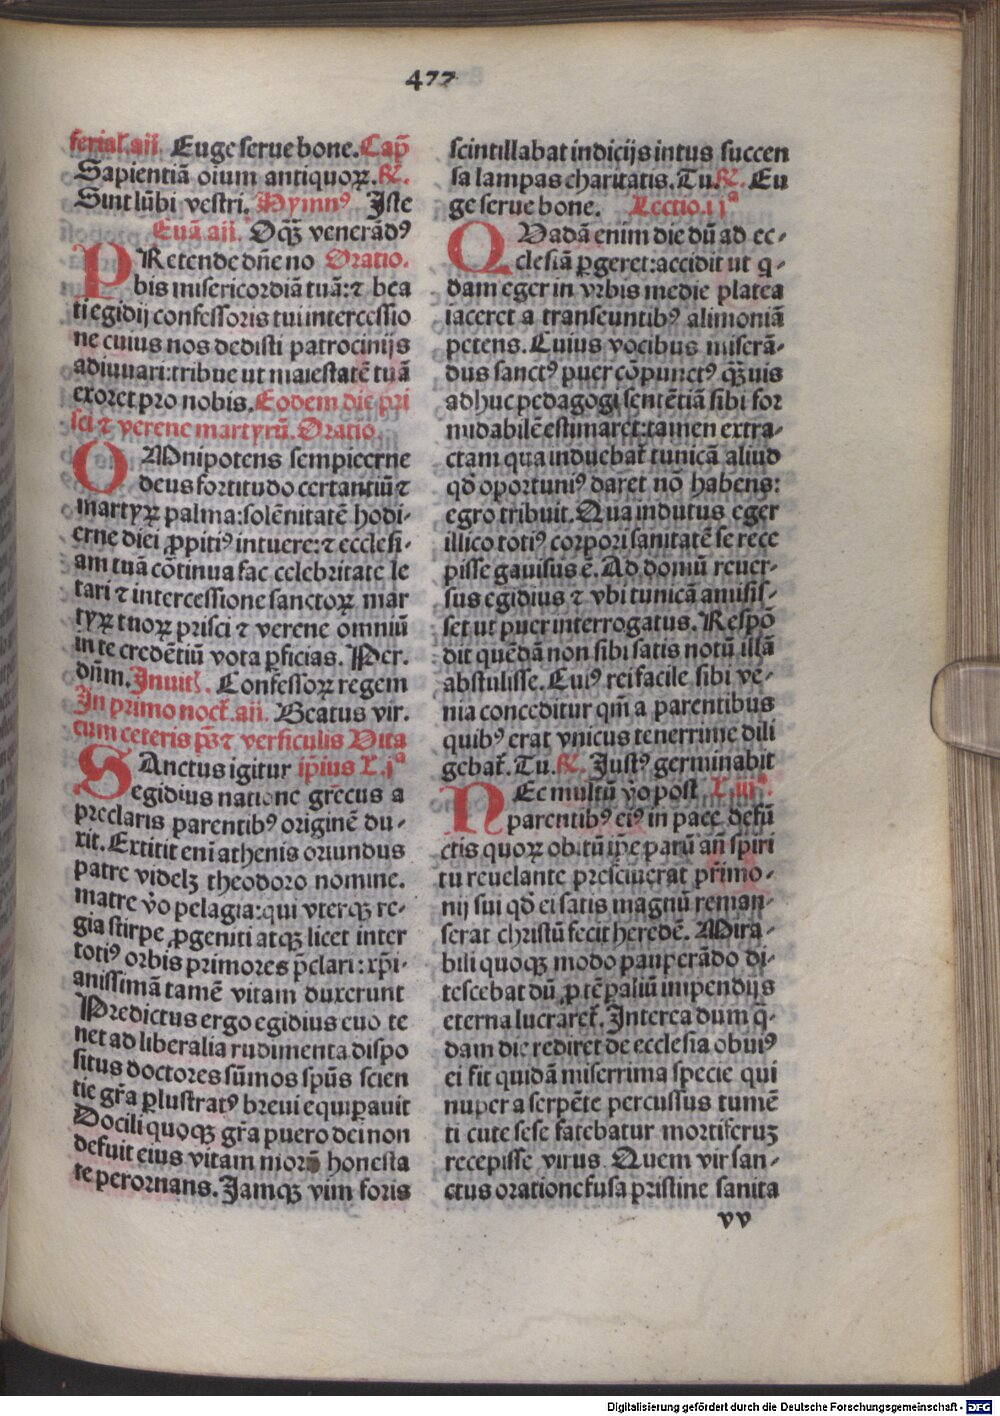 477
ferial̕.añ. Euge serue bone. Cap̄
Sapientiā oīum antiquoꝝ. ℟.
Sint lūbi vestri. Hymnꝰ Iste
Euā añ. Oq̄ꝫ venerādꝰ
PRetende dñe no Oratio.
bis misericordiā tuā: ⁊ bea
ti egidij confessoris tui intercessio
ne cuius nos dedisti patrocinijs
adiuuari: tribue ut maiestatē tuā
exoret pro nobis. Eodem die pri
sci ⁊ verene martyrū. Oratio.
OMnipotens sempiterne
deus fortitudo certantiū ⁊
martyꝝ palma: solēnitatē hodi-
erne diei ꝓpitiꝰ intuere: ⁊ ecclesi-
am tuā cōtinua fac celebritate le
tari ⁊ intercessione sanctoꝝ mar
tyꝝ tuoꝝ prisci ⁊ verene omniū
in te credētiū vota ꝑficias. Per.
dñm. Inuit̕. Confessoꝝ regem
In primo noct̕. añ. Beatus vir.
cum ceteris ps̄ ⁊ versiculis Vita
SAnctus igitur ip̄ius L. jᵃ
egidius natione grecus a
preclaris parentibꝰ originē du-
xit. Extitit eni athenis oriundus
patre videlꝫ theodoro nomine.
matre v̊o pelagia: qui vterqꝫ re-
gia stirpe ꝓgeniti atqꝫ licet inter
totiꝰ orbis primores p̄clari: xp̄i-
anissimā tamē vitam duxerunt
Predictus ergo egidius euo te
net ad liberalia rudimenta dispo
situs doctores sūmos spūs scien
tie gr̄a ꝑlustratꝰ breui equipauit
Docili quoqꝫ gr̄a puero dei non
defuit eius vitam morū honesta
te perornans. Iamqꝫ vim foris
scintillabat indicijs intus succen
sa lampas charitatis. Tu. ℟. Eu
ge serue bone. Lectio. ijᵃ
QUadā enim die dū ad ec-
clesiā ꝑgeret: accidit ut q-
dam eger in vrbis medie platea
iaceret a transeuntibꝰ alimoniā
petens. Cuius vocibus miserā-
dus sanctꝰ puer cōpunctꝰ q̄ꝫuis
adhuc pedagogi sentētiā sibi for
midabilē estimaret: tamen extra-
ctam qua induebat̕ tunicā aliud
qd̄ oportuniꝰ daret nō habens:
egro tribuit. Qua indutus eger
illico totiꝰ corpori sanitatē se rece
pisse gauisus ē. Ad domū reuer-
sus egidius ⁊ vbi tunicā amisis-
set ut puer interrogatus. Respō
dit quēdā non sibi satis notū illā
abstulisse. Cuiꝰ rei facile sibi ve-
nia conceditur qm̄ a parentibus
quibꝰ erat vnicus tenerrime dili
gebat̕. Tu. ℟. Iustꝰ germinabit
NEc multū v̊o post L. iijᵃ.
parentibꝰ eiꝰ in pace defū
ctis quoꝝ obitū ip̄e parū añ spiri
tu reuelante presciuerat pr̄imo-
nij sui qd̄ ei satis magnū reman-
serat christū fecit heredē. Mira-
bili quoqꝫ modo pauperādo di-
tescebat dū ꝓ tēꝑaliū impendijs
eterna lucraret̕. Interea dum q̄-
dam die rediret de ecclesia obuiꝰ
ei fit quidā miserrima specie qui
nuper a serpēte percussus tumē
ti cute sese fatebatur mortiferuꝫ
recepisse virus. Quem vir san-
ctus oratione fusa pristine sanita
vv
Digitalisierung gefördert durch die Deutsche Forschungsgemeinschaft - DFG